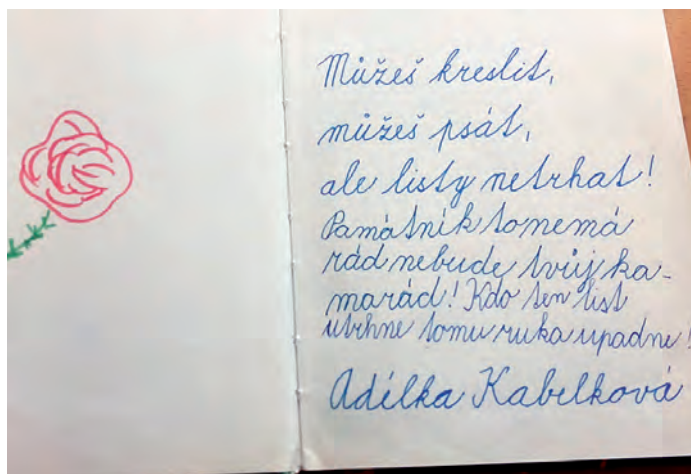 Můžeš kreslit,
můžeš psát,
ale listy netrhat!
Památník to nemá
rád nebude tvůj ka-
marád! Kdo ten list
utrhne tomu ruka upadne!
Adélka Kabelková